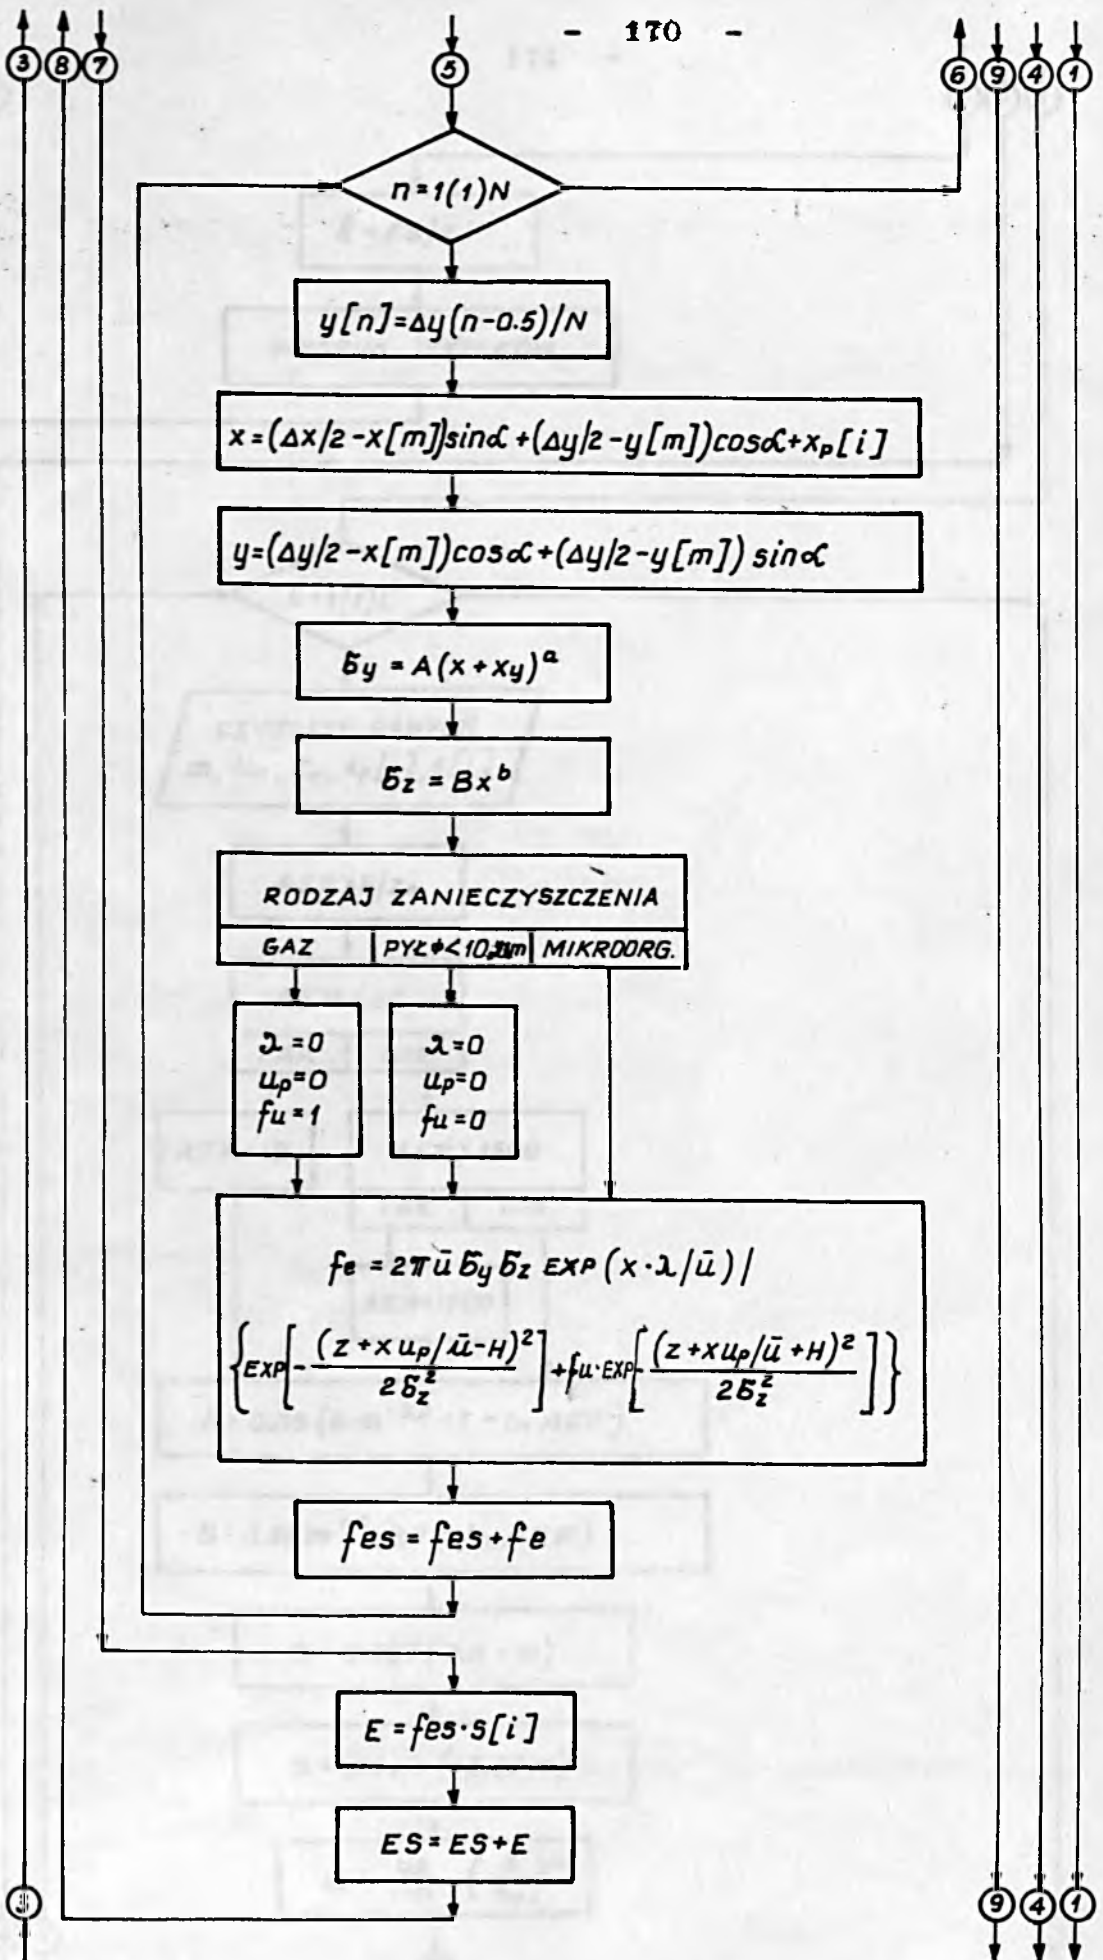 - 170 -
3 8 7 5 6 9 4 1
n=1(1)N
y[n]=Δy(n-0.5)/N
x=(Δx/2-x[m])sinα+(Δy/2-y[m])cosα+xp[i]
y=(Δy/2-x[m])cosα+(Δy/2-y[m]) sinα
бy = A(x+xy)^a
бz = Bx^b
RODZAJ ZANIECZYSZCZENIA
GAZ | PYŁ ϕ<10μm | MIKROORG.
λ=0 λ=0
up=0 up=0
fu=1 fu=0
fe = 2πū бy бz EXP(x·λ/ū)/
{EXP[-(z+xup/ū-H)²/2бz²]+fu·EXP[-(z+xup/ū+H)²/2бz²]}
fes = fes+fe
E = fes·s[i]
ES = ES+E
3 9 4 1